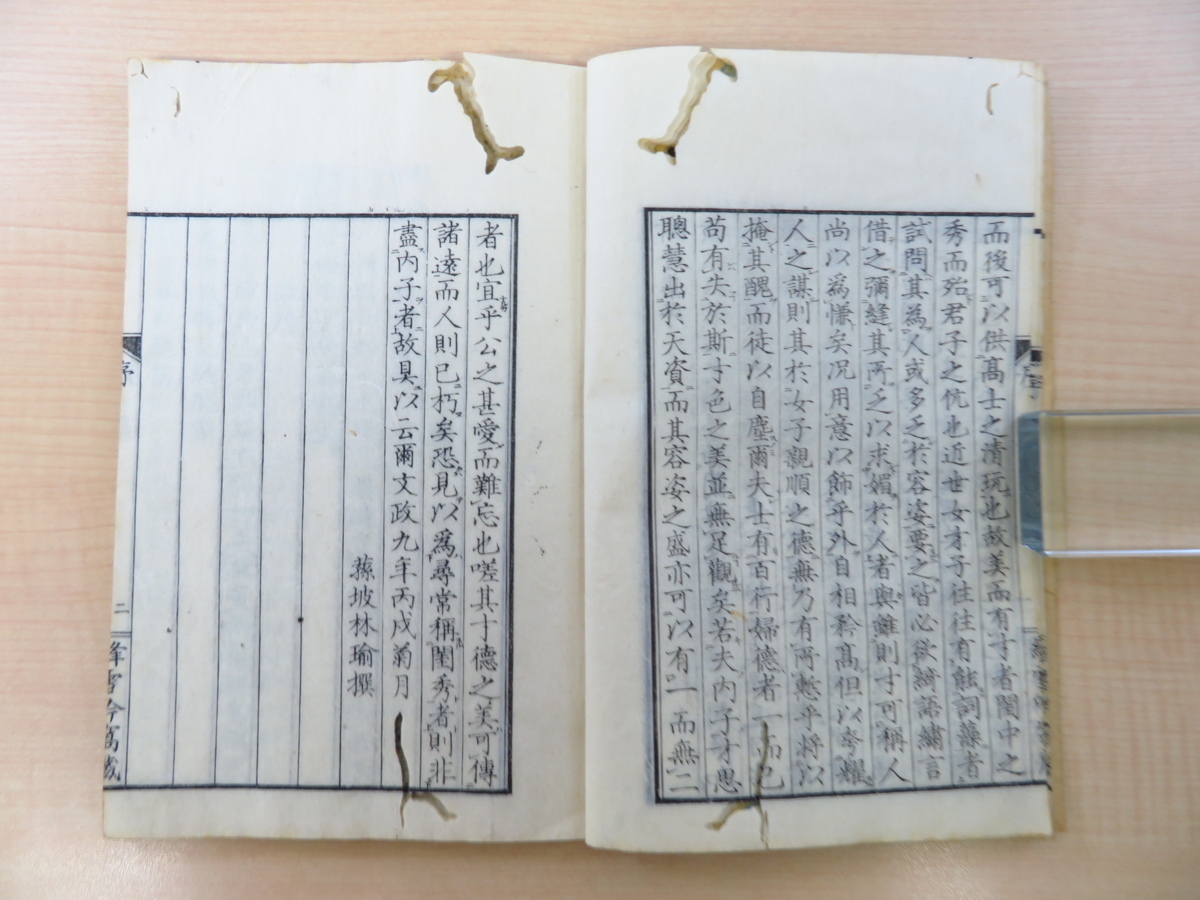 而後可以供高士之清玩也故美而有才者閨中之
秀而殆君子之仇也近世女才子往往有能詞藻者
試問其為人或多乏於容姿要之皆必欲綺語繡言
借之彌縫其所乏以求媚於人者與雖則才可稱人
尚以為慊矣況用意以飾乎外自相矜高但以夸耀
人之謀則其於女子親順之德無乃有所慙乎將以
掩其醜而徒以自塵爾夫士有百行婦德者一而已
苟有失於斯才色之美並無足觀矣若夫內子才思
聰慧出於天資而其容姿之盛亦可以有一而無二
者也宜乎公之甚愛而難忘也嗟其才德之美可傳
諸遠而人則已朽矣恐見以為尋常稱閨秀者則非
盡內子者故具以云爾文政九年丙戌菊月
蓀坡林瑜撰
序
二